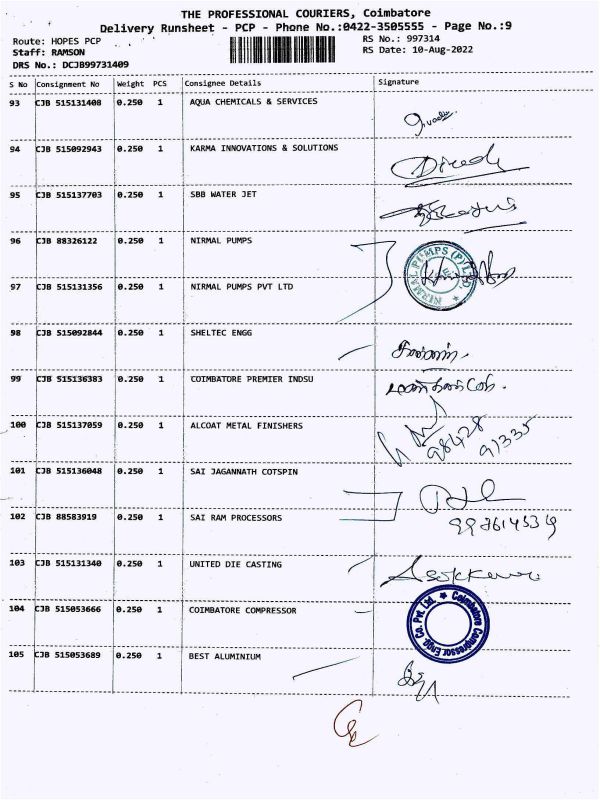 THE PROFESSIONAL COURIERS, Coimbatore
Delivery Runsheet - PCP - Phone No.:0422-3505555 - Page No.:9
Route: HOPES PCP RS No.: 997314
Staff: RAMSON RS Date: 10-Aug-2022
DRS No.: DCJB99731409
S No Consignment No Weight PCS Consignee Details Signature
93 CJB 515131408 0.250 1 AQUA CHEMICALS & SERVICES
94 CJB 515092943 0.250 1 KARMA INNOVATIONS & SOLUTIONS
95 CJB 515137703 0.250 1 SBB WATER JET
96 CJB 88326122 0.250 1 NIRMAL PUMPS
NIRMAL PUMPS (P) LTD.
97 CJB 515131356 0.250 1 NIRMAL PUMPS PVT LTD
98 CJB 515092844 0.250 1 SHELTEC ENGG
99 CJB 515136383 0.250 1 COIMBATORE PREMIER INDSU
100 CJB 515137059 0.250 1 ALCOAT METAL FINISHERS
98428
91335
101 CJB 515136048 0.250 1 SAI JAGANNATH COTSPIN
102 CJB 88583919 0.250 1 SAI RAM PROCESSORS
103 CJB 515131340 0.250 1 UNITED DIE CASTING
104 CJB 515053666 0.250 1 COIMBATORE COMPRESSOR
Coimbatore Compressor Engg. Co. Pvt. Ltd.
105 CJB 515053689 0.250 1 BEST ALUMINIUM